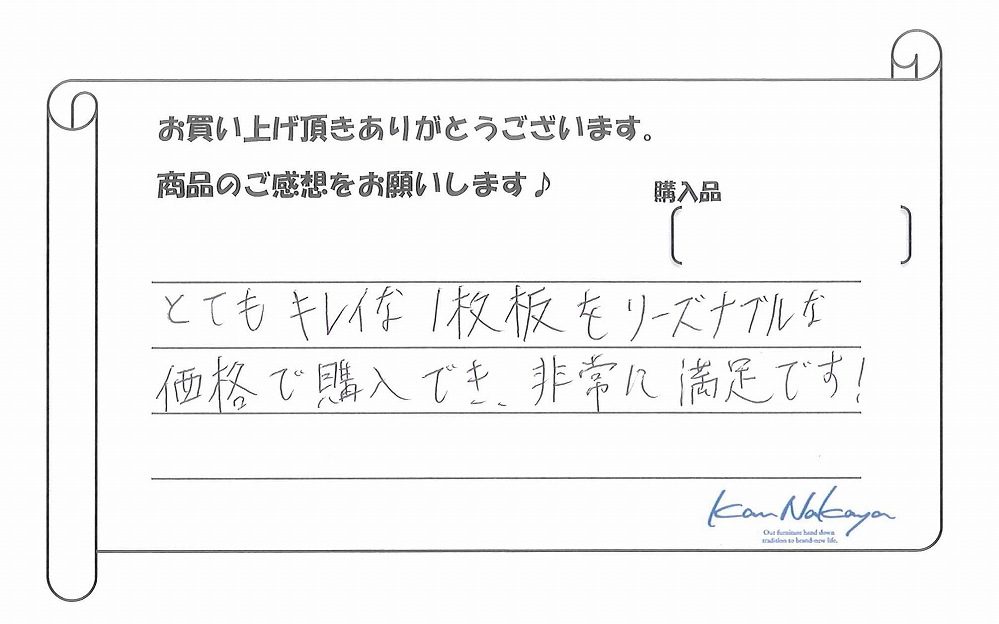 お買い上げ頂きありがとうございます。
商品のご感想をお願いします♪
購入品
とても キレイな 1枚板を リーズナブルな
価格で購入でき、非常に満足です!
Kan Nakaya
Our furniture hand down
tradition to brand-new life.